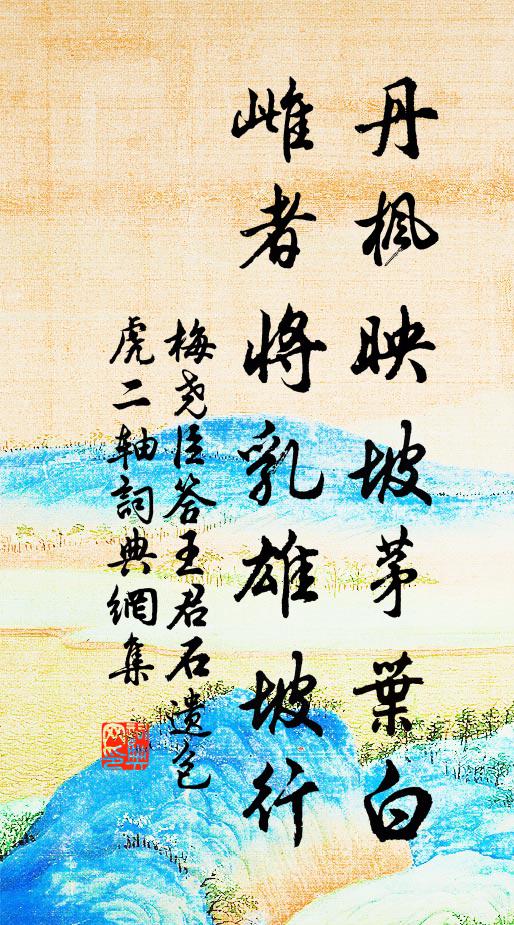 丹楓映坡茅葉白
雌者將乳雄坡行
梅尧臣答王君石遗包
虎二轴詞典網集